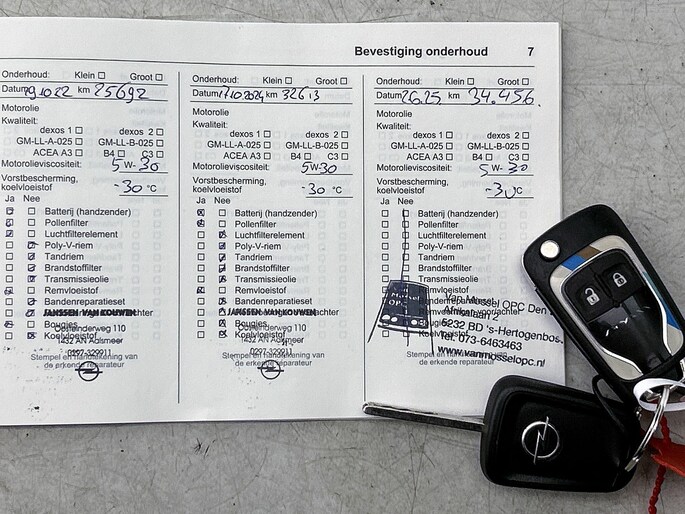 Bevestiging onderhoud 7
Onderhoud: Klein Groot
Datum 29.10.22 km 25692
Motorolie
Kwaliteit:
dexos 1 dexos 2
GM-LL-A-025 GM-LL-B-025
ACEA A3 B4 C3
Motorolieviscositeit: 5W-30
Vorstbescherming,
koelvloeistof -30 °C
Ja Nee
Batterij (handzender)
Pollenfilter
Luchtfilterelement
Poly-V-riem
Tandriem
Brandstoffilter
Transmissieolie
Remvloeistof
Bandenreparatieset
JANSSEN VAN KOUWEN
Bougies
Oosteinderweg 110
Koelvloeistof
1432 AN Aalsmeer
0297-329911
Stempel en handtekening van
de erkende reparateur
Onderhoud: Klein Groot
Datum 17.10.2024 km 32613
Motorolie
Kwaliteit:
dexos 1 dexos 2
GM-LL-A-025 GM-LL-B-025
ACEA A3 B4 C3
Motorolieviscositeit: 5W30
Vorstbescherming,
koelvloeistof -30 °C
Ja Nee
Batterij (handzender)
Pollenfilter
Luchtfilterelement
Poly-V-riem
Tandriem
Brandstoffilter
Transmissieolie
Remvloeistof
Bandenreparatieset
JANSSEN VAN KOUWEN
Bougies
Oosteinderweg 110
Koelvloeistof
1432 AN Aalsmeer
0297-329911
Stempel en handtekening van
de erkende reparateur
Onderhoud: Klein Groot
Datum km 34.456
Motorolie
Kwaliteit:
dexos 1 dexos 2
GM-LL-A-025 GM-LL-B-025
ACEA A3 B4 C3
Motorolieviscositeit: 5W-30
Vorstbescherming,
koelvloeistof -30 °C
Ja Nee
Batterij (handzender)
Pollenfilter
Luchtfilterelement
Poly-V-riem
Tandriem
Brandstoffilter
Transmissieolie
Remvloeistof
Van Mossel OPC Den
5232 BD 's-Hertogenbos
Tel. 073-6463463
www.vanmosselopc.nl
Stempel en handtekening van
de erkende reparateur